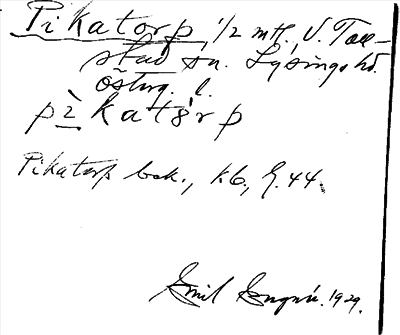 Pikatorp, 1/2 mtl. V. Toll-
stad sn. Lysings hd.
Östg. l.
pìkatòrp
Pikatorp bek., Kb., G. 44.
Emil 1929.